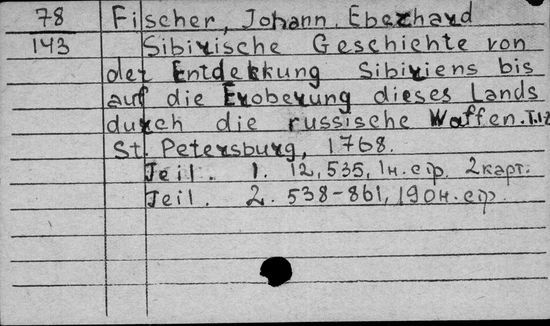 78 Fischer, Johann Eberhard
143 Sibirische Geschichte von
der Entdekkung Sibiriens bis
auf die Eroberung dieses Lands
durch die russische Waffen. T.1-2
St. Petersburg, 1768.
Teil. 1. 12, 535, 1н. стр. 2 карт.
Teil. 2. 538-861, 190н. стр.